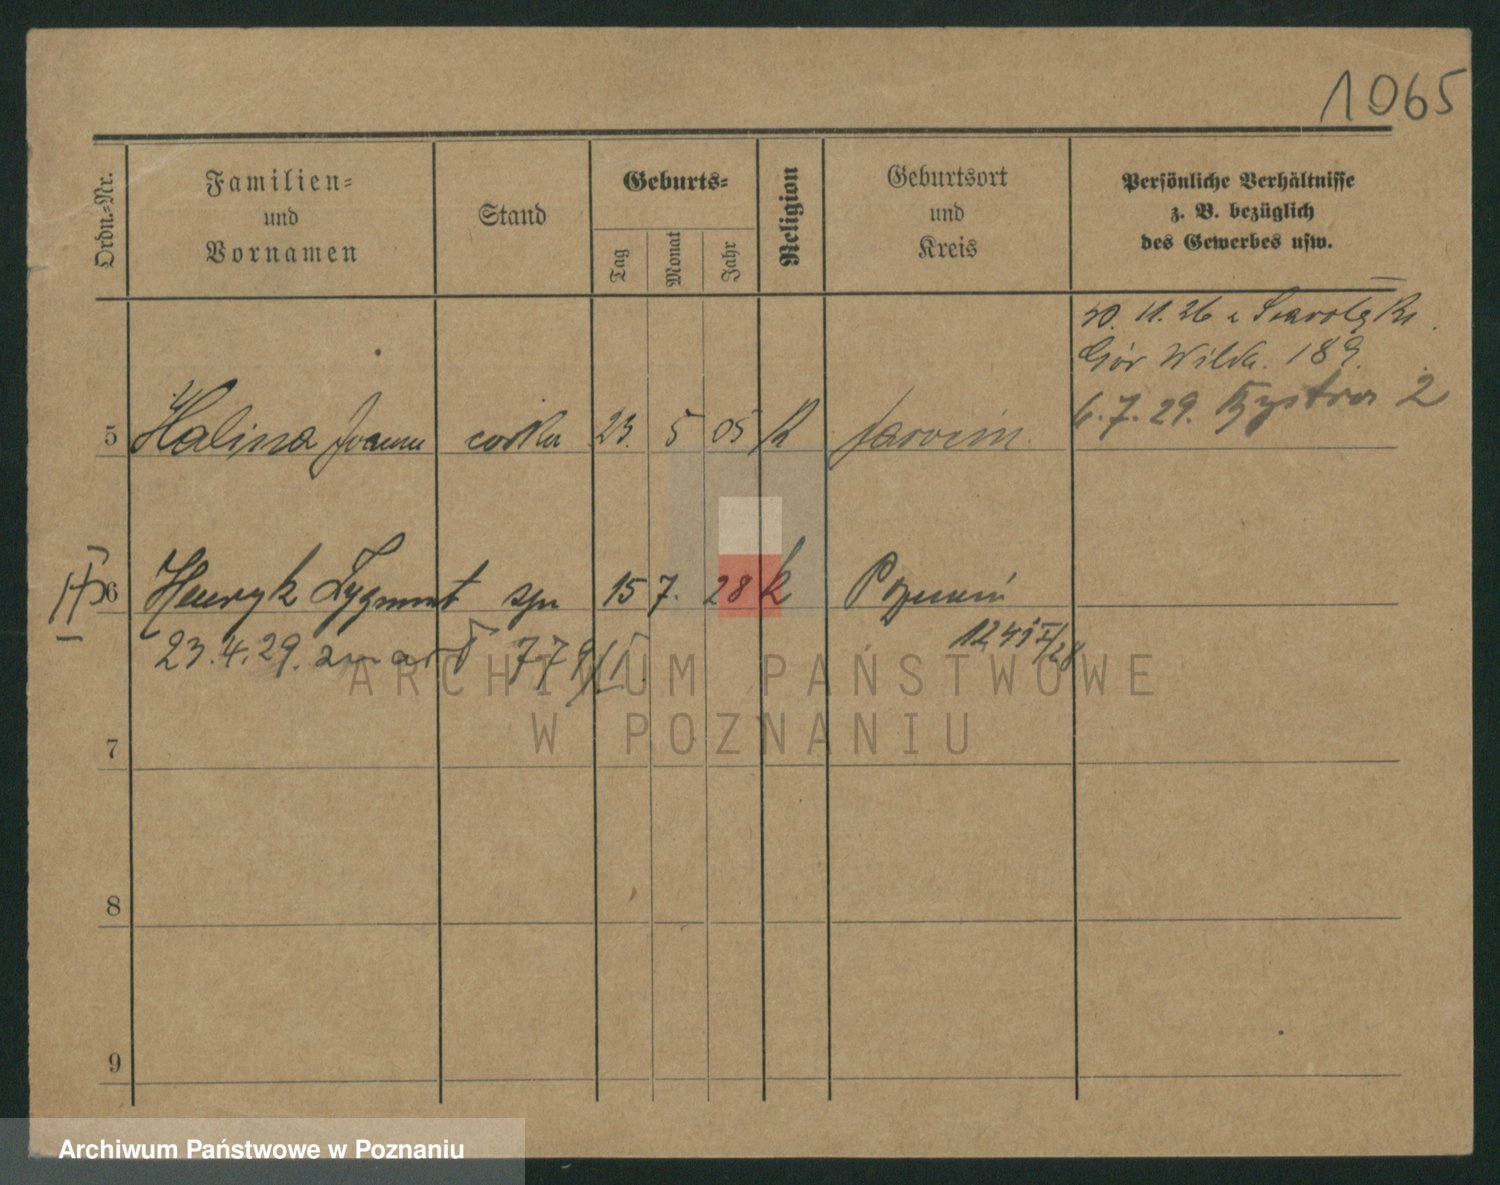 1065
Ordn.-Nr.
Familien-
und
Vornamen
Stand
Geburts-
Tag
Monat
Jahr
Religion
Geburtsort
und
Kreis
Persönliche Verhältnisse
z. B. bezüglich
des Gewerbes usw.
11. 26 z
Gór Wilda. 189
6.7.29. Bystra 2
5 Halina Joanna córka 23. 5 05 K Jarocin
6 Henryk Zygmunt syn 15 7. 28 k Poznań
23.4.29. zmarł 779/I
7
8
9
ARCHIWUM PAŃSTWOWE
W POZNANIU
Archiwum Państwowe w Poznaniu